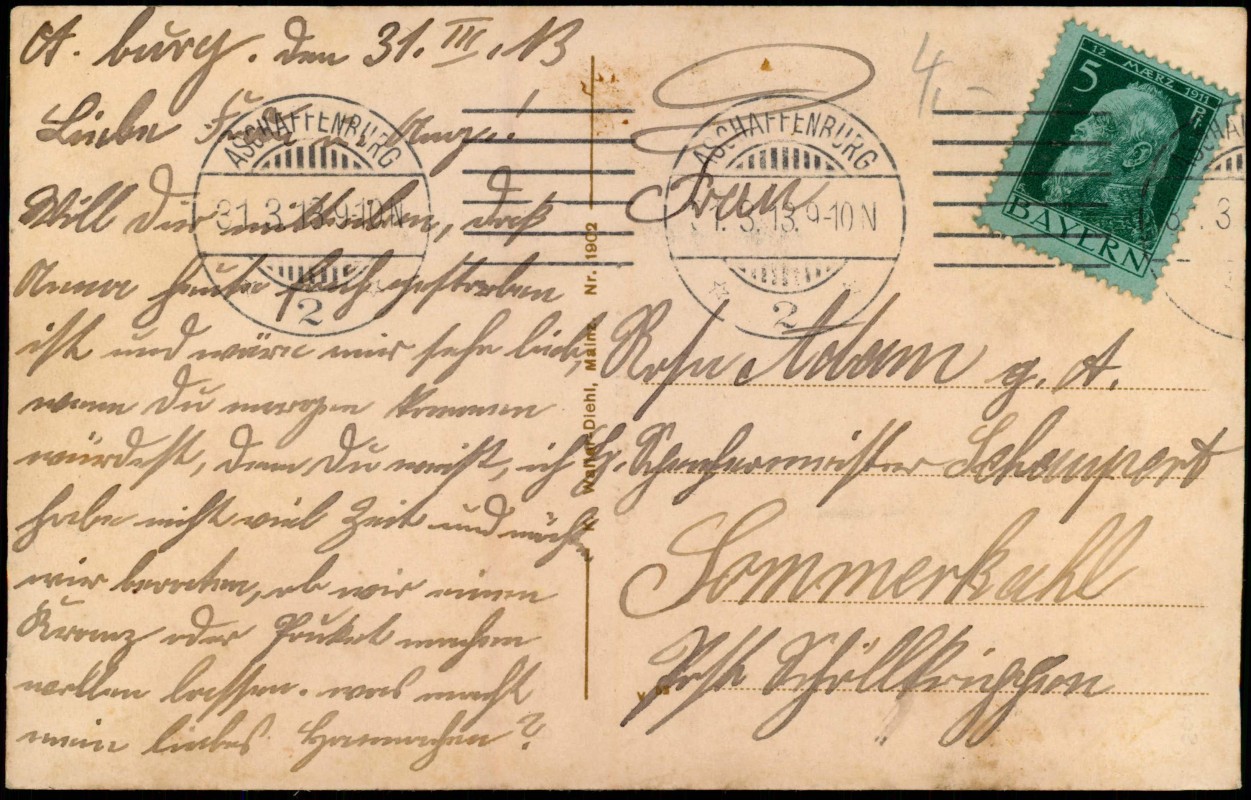 A. burg. den 31. III. 13
Liebe
Will Dir mitteilen, daß
Anna heute früh gestorben
ist und wäre mir sehr lieb,
wenn Du morgen kommen
würdest, denn Du weißt, ich
habe nicht viel Zeit und
wir beraten, ob wir einen
Kranz oder Pouket machen
wollen lassen. was macht
mein liebes ?
ASCHAFFENBURG
31. 3. 13. 9-10 N
2
K. Walter-Diehl, Mainz. Nr. 1902
4,-
ASCHAFFENBURG
31. 3. 13. 9-10 N
2
12 MÆRZ 1911
5 PF
BAYERN
Frau
Rosa Adam g. A.
Schaupert
Sommerkahl
Post Schöllkrippen